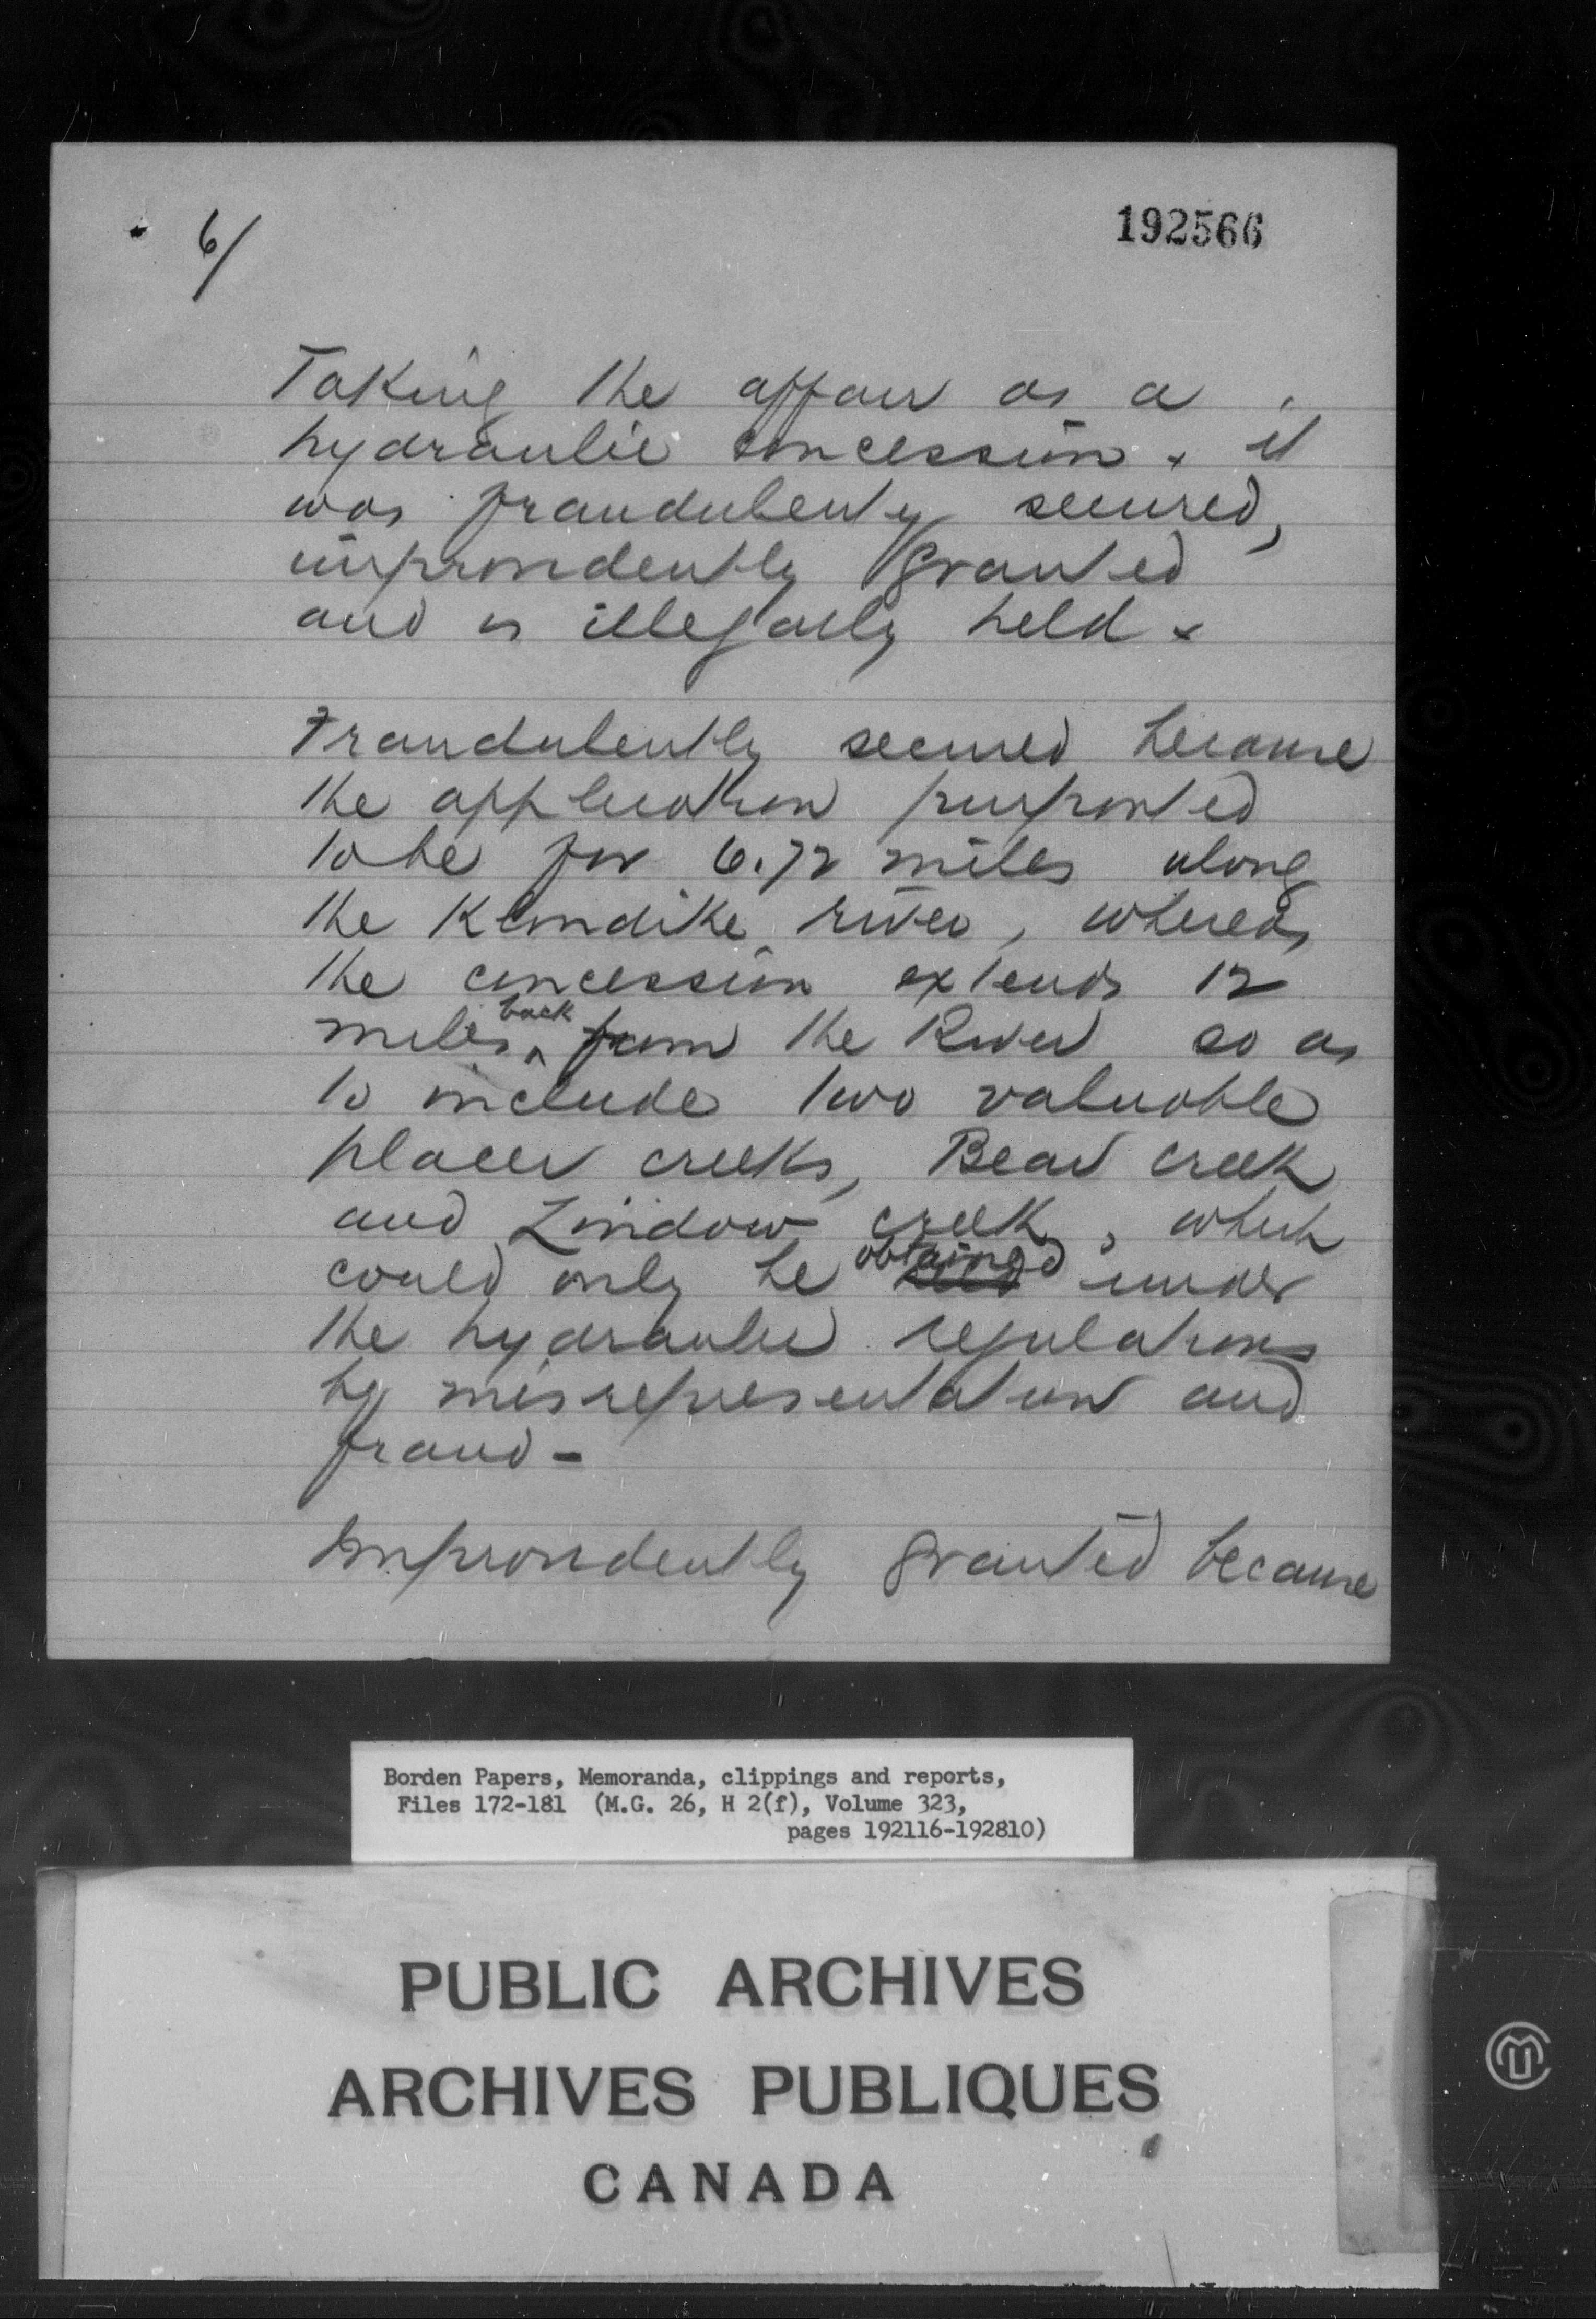 6/
192566
Taking the affair as a
hydraulic concession x it
was fraudulently secured,
improvidently granted
and is illegally held x
Fraudulently secured because
the application purported
to be for 6.72 miles along
the Klondike river, whereas
the concession extends 12
miles back from the River so as
to include two valuable
placer creeks, Bear creek
and Lindow creek, which
could only be obtained under
the hydraulic regulations
by misrepresentation and
fraud -
Improvidently granted because
Borden Papers, Memoranda, clippings and reports,
Files 172-181 (M.G. 26, H 2(f), Volume 323,
pages 192116-192810)
PUBLIC ARCHIVES
ARCHIVES PUBLIQUES
CANADA